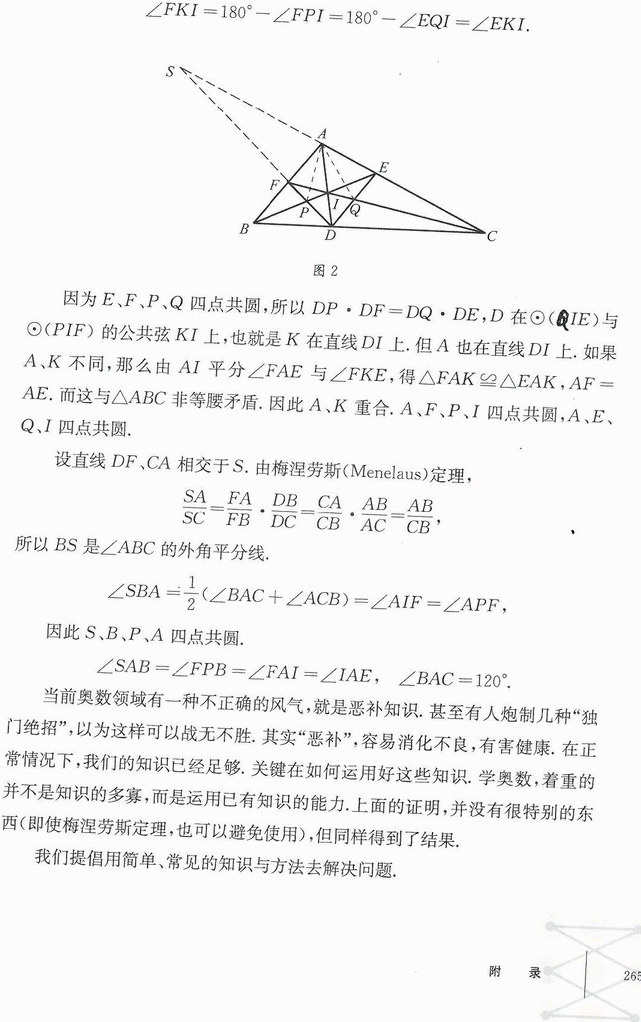 ∠FKI=180°−∠FPI=180°−∠EQI=∠EKI.
S
A
E
F
P
I
Q
B
D
C
图 2
因为 E、F、P、Q 四点共圆,所以 DP·DF=DQ·DE,D 在⊙(QIE)与
⊙(PIF) 的公共弦 KI 上,也就是 K 在直线 DI 上. 但 A 也在直线 DI 上. 如果
A、K 不同,那么由 AI 平分∠FAE 与∠FKE,得△FAK≌△EAK,AF=
AE. 而这与△ABC 非等腰矛盾. 因此 A、K 重合. A、F、P、I 四点共圆,A、E、
Q、I 四点共圆.
设直线 DF、CA 相交于 S. 由梅涅劳斯(Menelaus)定理,
SA/SC=FA/FB·DB/DC=CA/CB·AB/AC=AB/CB,
所以 BS 是∠ABC 的外角平分线.
∠SBA=1/2(∠BAC+∠ACB)=∠AIF=∠APF,
因此 S、B、P、A 四点共圆.
∠SAB=∠FPB=∠FAI=∠IAE, ∠BAC=120°.
当前奥数领域有一种不正确的风气,就是恶补知识. 甚至有人炮制几种“独
门绝招”,以为这样可以战无不胜. 其实“恶补”,容易消化不良,有害健康. 在正
常情况下,我们的知识已经足够. 关键在如何运用好这些知识. 学奥数,着重的
并不是知识的多寡,而是运用已有知识的能力. 上面的证明,并没有很特别的东
西(即使梅涅劳斯定理,也可以避免使用),但同样得到了结果.
我们提倡用简单、常见的知识与方法去解决问题.
附 录 265